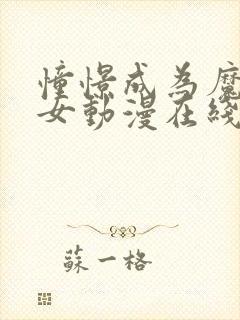 憧憬成為魔
女動漫在綫
蘇一格